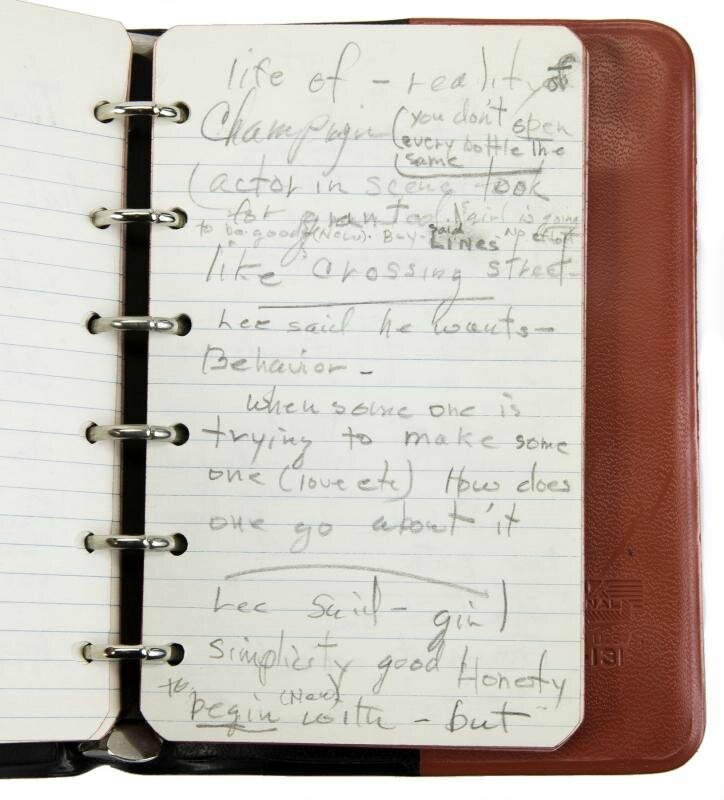 life of - reality of
Champaign (you don't open
every bottle the
same
(actor in scene took
for granted. girl is going
to be good (New). Buy- said LINES no effort
like crossing street-
Lee said he wants-
Behavior -
when some one is
trying to make some
one (love etc) How does
one go about it
Lee said - girl
simplicity good Honesty
to begin (New) with - but